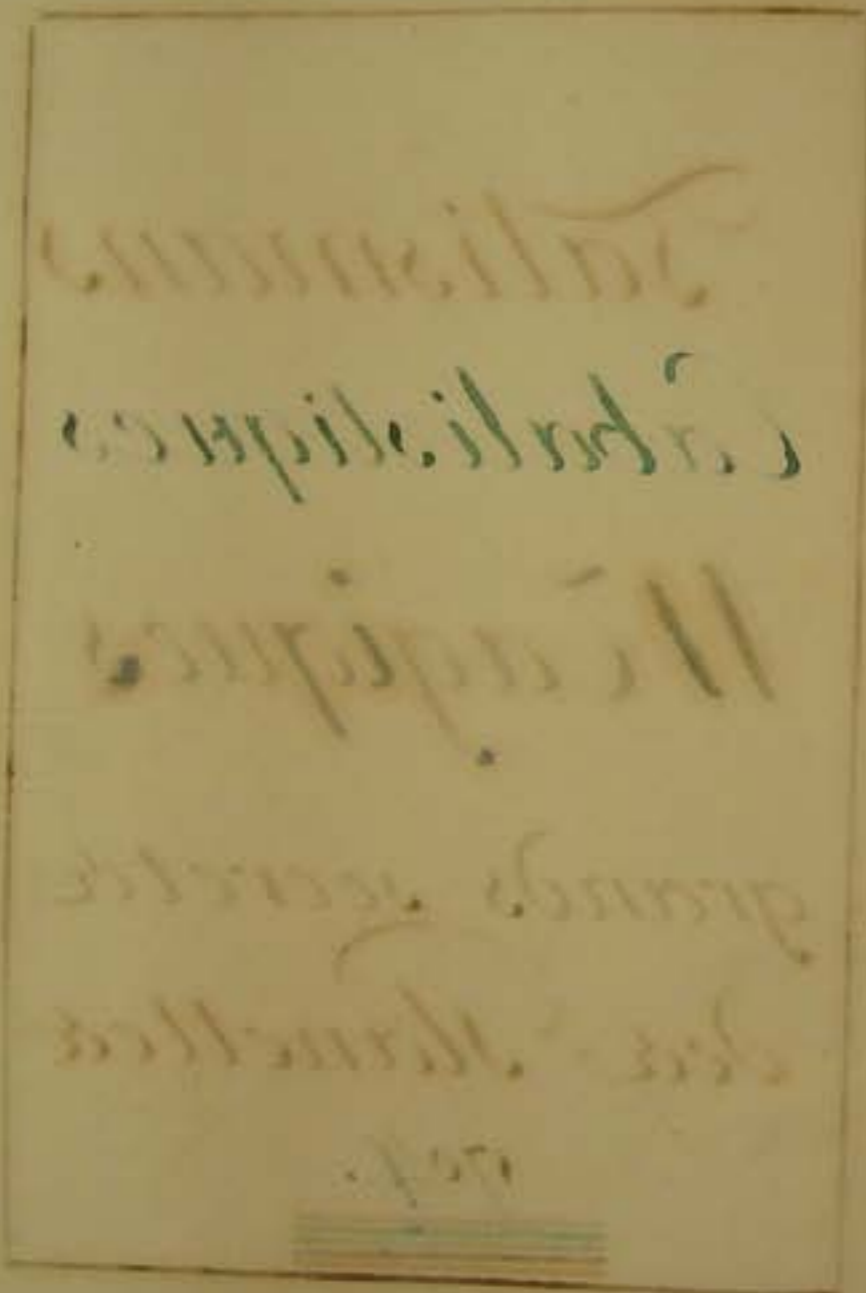 Talismans
Cabalistiques
Magiques
grands secrets
des
1704.